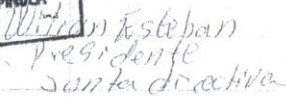 Esteban
Presidente
Junta directiva